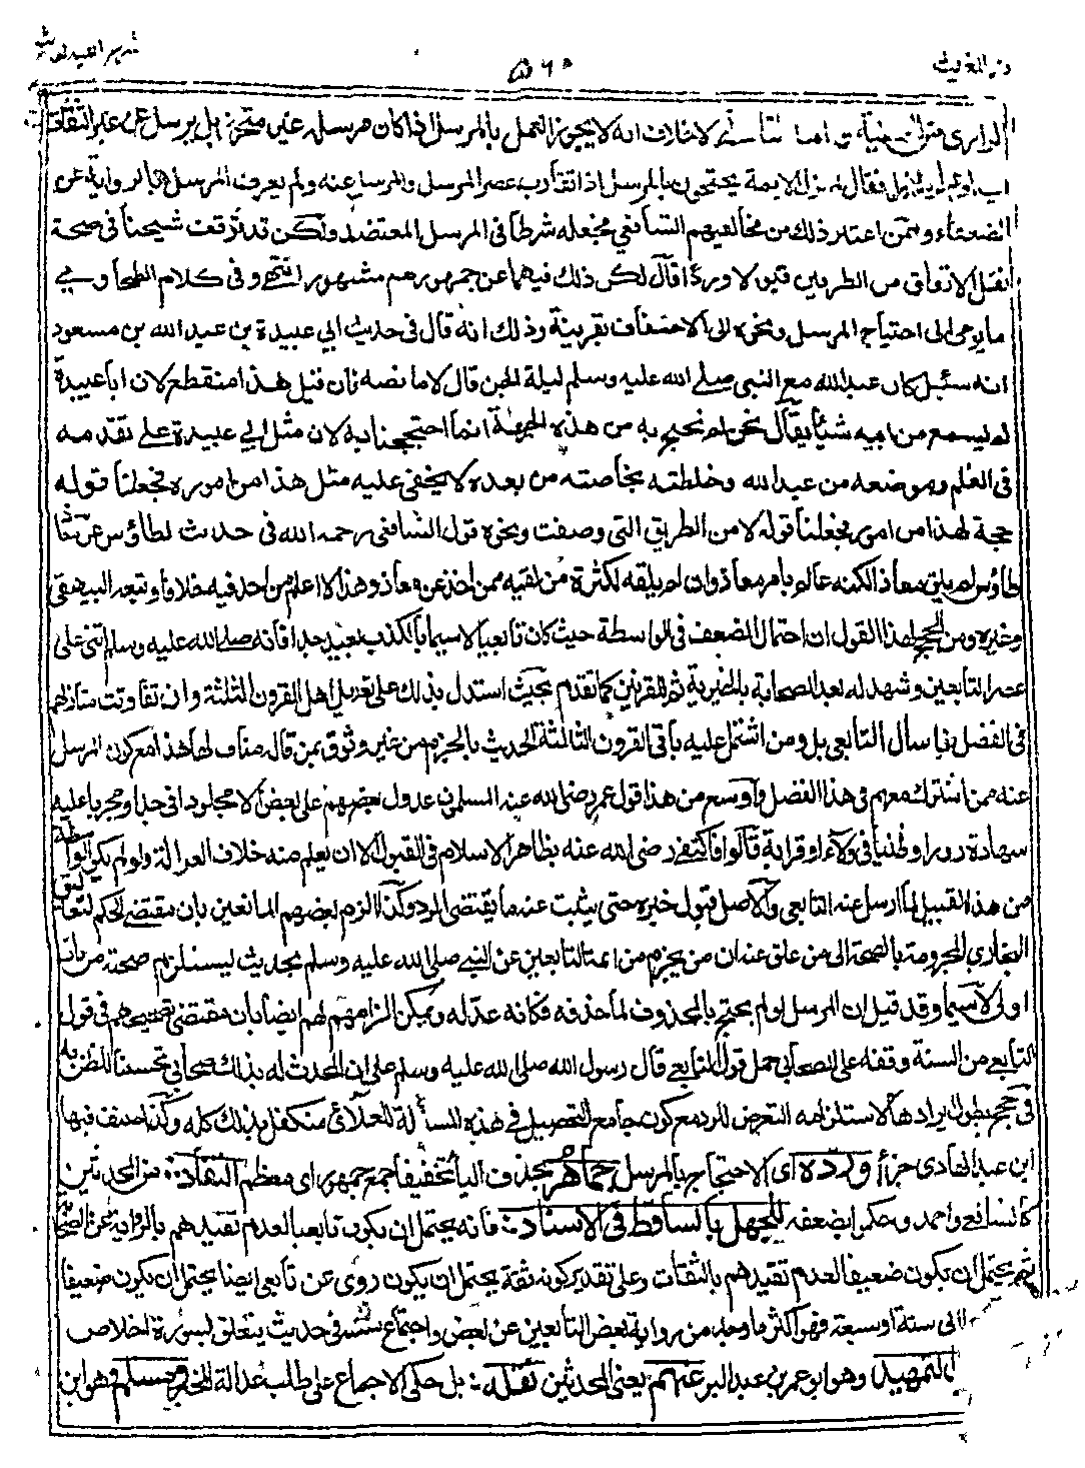 فتح المغيث
شرح الفية الحديث
الرازي من الحنفية لا خلاف انه لا يجوز العمل بالمرسل اذا كان مرسله غير متحرز بل يرسل عن غير الثقات
فقال لم يزل الايمة يحتجون بالمرسل اذا تقارب عصر المرسل والمرسل عنه ولم يعرف المرسل بالرواية عن
الضعفاء وممن اعتبر ذلك من مخالفيهم الشافعي فجعله شرطا في المرسل المعتضد ولكن قد توقف شيخنا في صحة
نقل الاتفاق من الطرفين قبولا وردا قال لكن ذلك فيهما عن جمهورهم مشهور انتهى وفي كلام الطحاوي
ما يومى الى احتياج المرسل ونحوه الى الاحتفاف بقرينة وذلك انه قال في حديث ابي عبيدة بن عبد الله بن مسعود
انه سئل كان عبد الله مع النبي صلى الله عليه وسلم ليلة الجن قال لا ما نصه فان قيل هذا منقطع لان ابا عبيدة
لم يسمع من ابيه شيئا يقال نحن لم نحتج به من هذه الجهة انما احتججنا به لان مثل ابي عبيدة على تقدمه
في العلم وموضعه من عبد الله وخلطته بخاصته من بعده لا يخفى عليه مثل هذا من اموره فجعلنا قوله
حجة لهذا من اموره فجعلنا قوله لا من الطريق التي وصفت ونحوه قول الشافعي رحمه الله في حديث لطاؤس عن معاذ
طاؤس لم يلق معاذ الكنه عالم بامر معاذ وان لم يلقه لكثرة من لقيه ممن اخذ عن معاذ وهذا لا اعلم من احد فيه خلافا وتبعه البيهقي
وغيره ومن الحجج لهذا القول ان احتمال الضعف في الواسطة حيث كان تابعيا لا سيما بالكذب بعيد جدا فانه صلى الله عليه وسلم اثنى على
عصر التابعين وشهد له بعد الصحابة بالخيرية ثم للقرنين كما تقدم بحيث استدل بذلك على تعديل اهل القرون الثلثة وان تفاوتت منازلهم
في الفضل فارسال التابعي بل ومن اشتمل عليه باقي القرون الثالثة الحديث بالجزم من غير وثوق بمن قاله مناف لها هذا مع كون المرسل
عنه ممن اشترك معهم في هذا الفضل واوسع من هذا قول عمر رضي الله عنه المسلمون عدول بعضهم على بعض الا مجلودا في حد او مجربا عليه
شهادة زور او ظنينا في ولاء او قرابة قالوا فاكتفى رضي الله عنه بظاهر الاسلام في القبول الا ان يعلم منه خلاف العدالة ولو لم يكن الواسطة
من هذا القبيل لما ارسل عنه التابعي والاصل قبول خبره حتى يثبت عنه ما يقتضي الرد وكذا الزم بعضهم المانعين بان مقتضى الحكم لتعاليق
البخاري المجزومة بالصحة الى من علق عنه ان من يجزم من ائمة التابعين عن النبي صلى الله عليه وسلم بحديث يستلزم صحته من باب
اولى لا سيما وقد قيل ان المرسل لو لم يحتج بالمحذوف لما حذفه فكانه عدله ويمكن الزامهم لهم ايضا بان مقتضى تصحيحهم في قول
التابعي من السنة وقفه على الصحابي حمل قول التابعي قال رسول الله صلى الله عليه وسلم على ان المحدث له بذلك صحابي تحسينا للظن به
في حجج يطول ايرادها لاستلزامه التعرض للرد مع كون جامع التحصيل في هذه المسألة للعلائي متكفل بذلك كله وكذا صنف فيها
ابن عبد الهادي جزأ ورده اى الاحتجاج بالمرسل جماهر بحذف اليا تخفيفا جمع جمهور اى معظم النقاد: من المحدثين
كالشافعي واحمد وحكموا بضعفه للجهل بالساقط في الاسناد: فانه يحتمل ان يكون تابعيا لعدم تقييدهم بالرواية عن الصحابة
ثم يحتمل ان يكون ضعيفا لعدم تقييدهم بالثقات وعلى تقدير كونه ثقة يحتمل ان يكون روى عن تابعي ايضا يحتمل ان يكون ضعيفا
الى ستة او سبعة فهو اكثر ما وجد من رواية بعض التابعين عن بعض واجتماع ستة في حديث يتعلق بسورة الاخلاص
التمهيد وهو ابو عمر بن عبد البر عنهم يعني المحدثين نقله: بل حكى الاجماع على طلب عدالة المخبر ومسلم وهو ابن